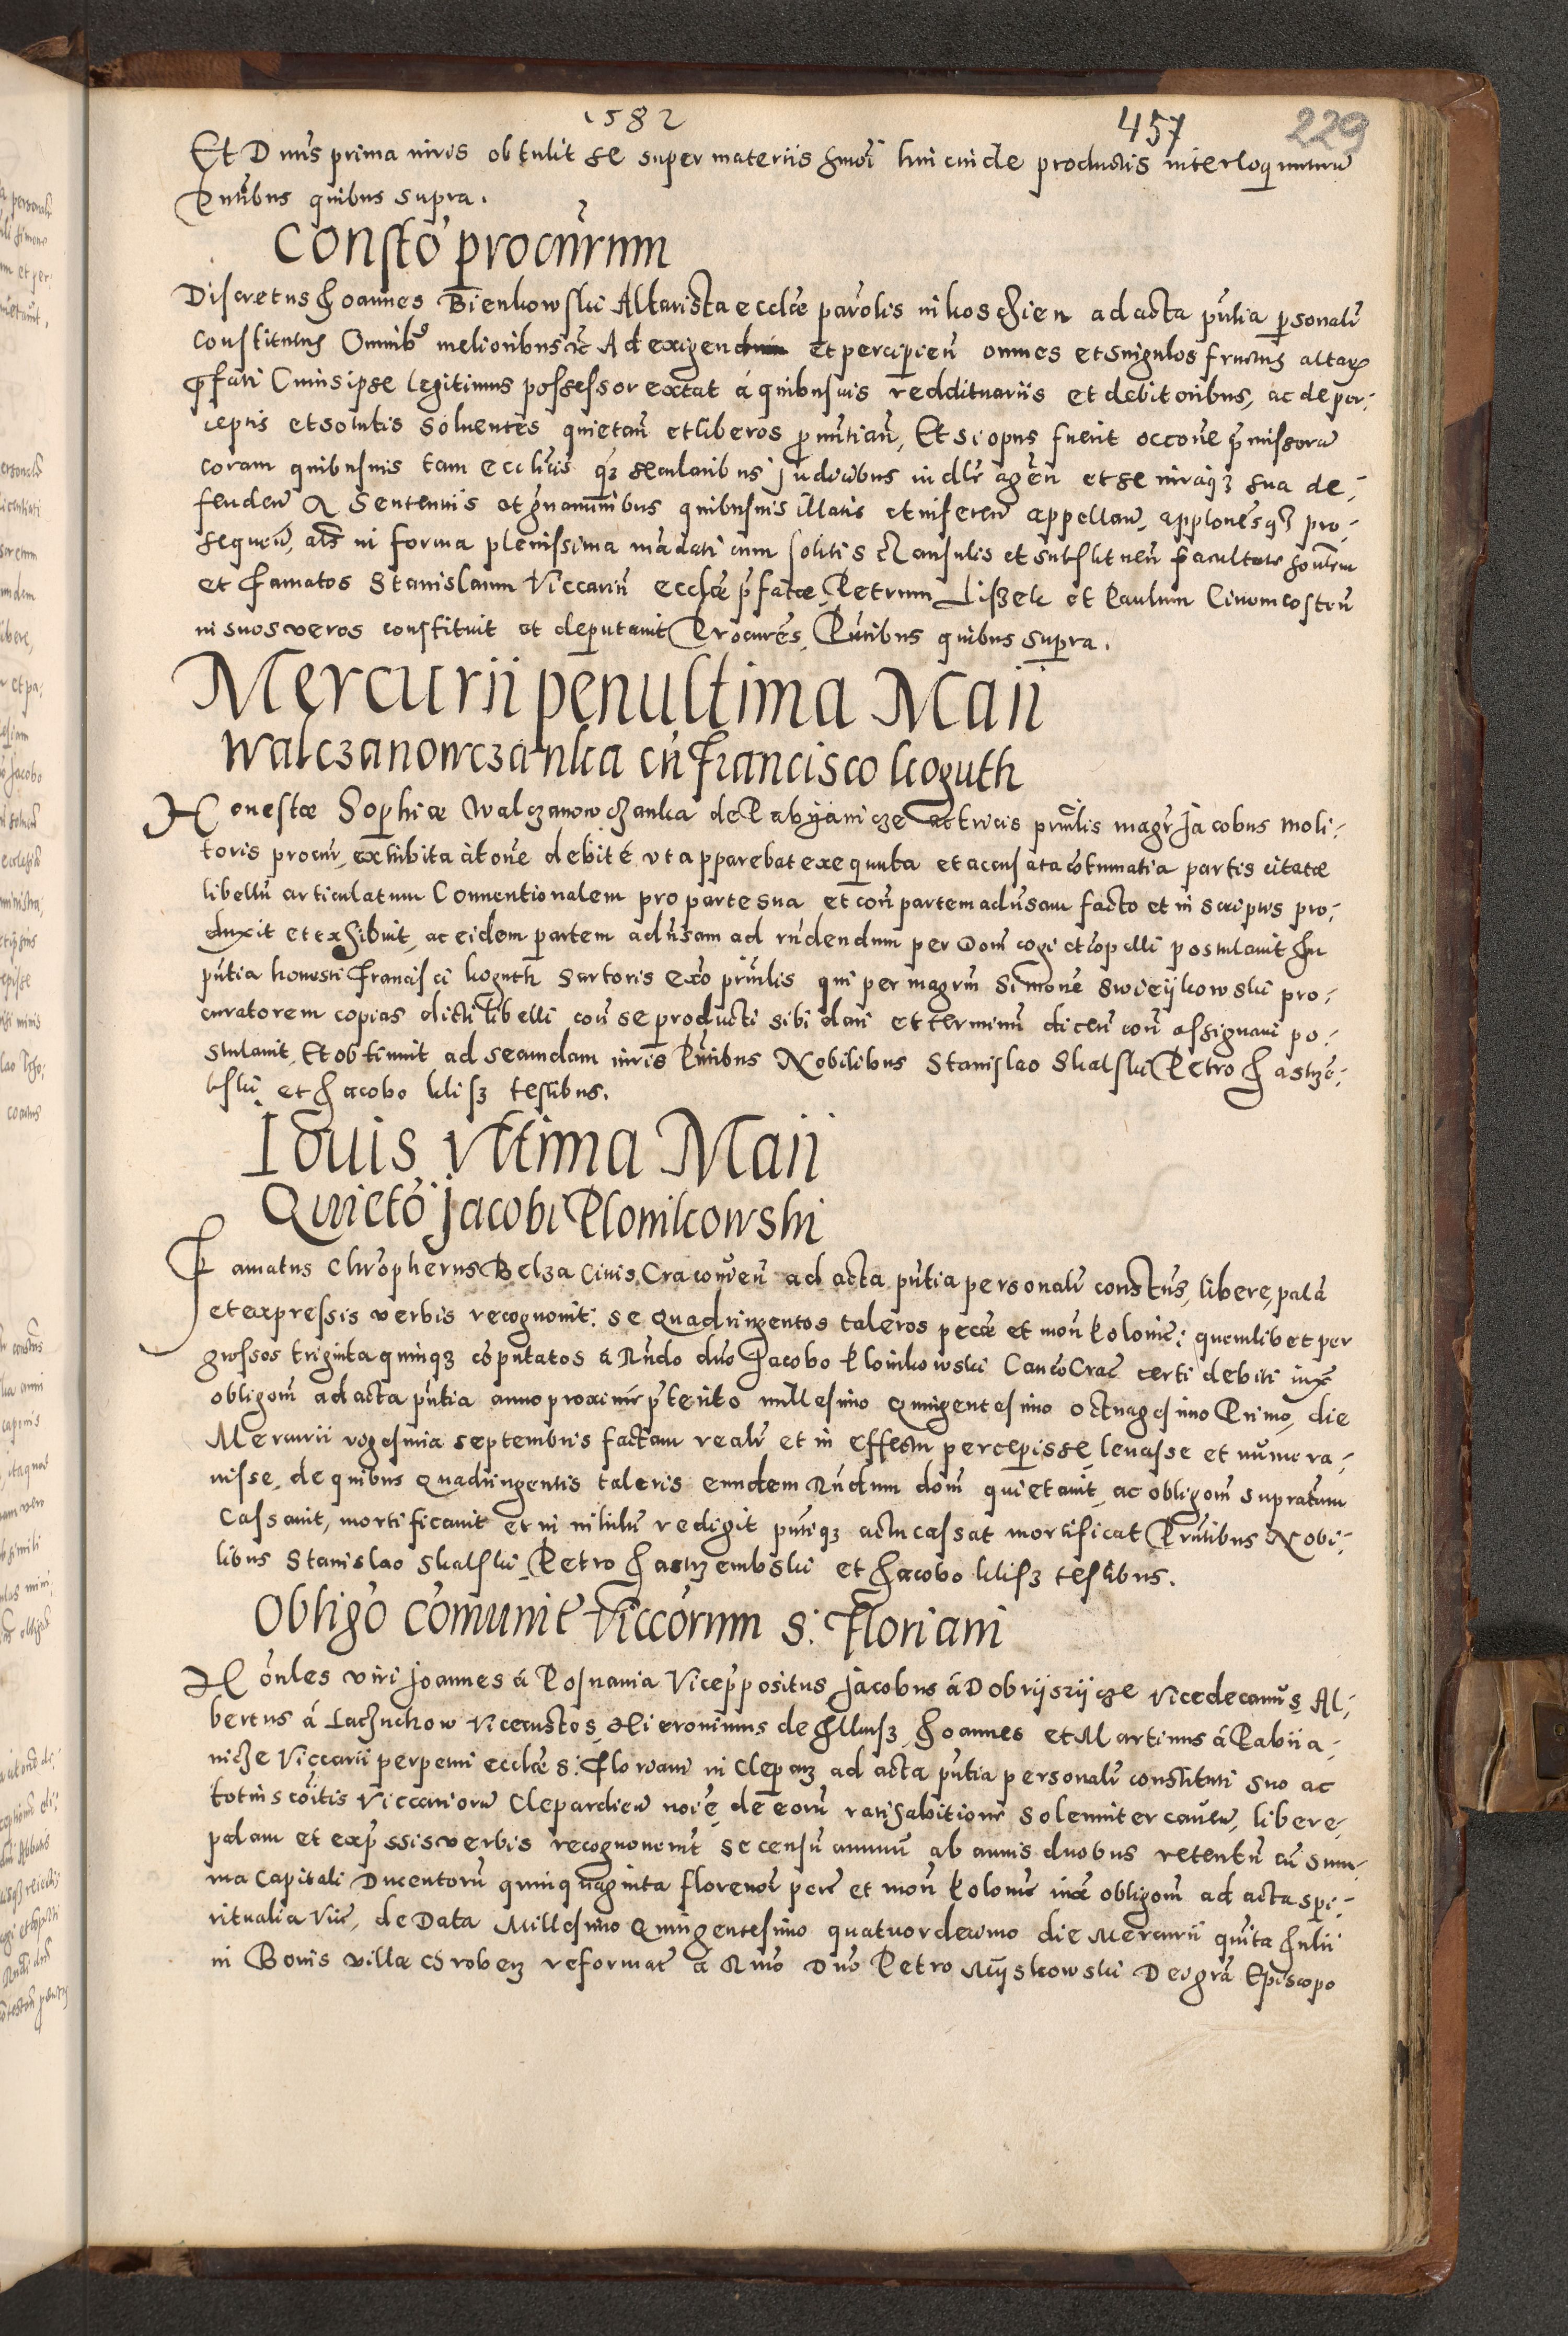 1582
457
229
Et D nus prima iuris obtulit se super materiis hmoi hinc inde productis interloqumturu
Pntibus quibus supra.
Consto procurum
Discretus Joannes Bienkowski Altarista ecclæ parolis in koschien ad acta pntia psonalr
constitutus Omnib9 melioribus etc Ad exigen et percipien omnes et singulos fructus altaris
pfati Cuius ipse legitimus possessor extat á quibusuis reddituariis et debitoribus, ac de per:
ceptis et solutis soluentes quietan et liberos pnuntian, Et si opus fuerit occone pmissoru
coram quibusuis tam eccliæcis q3 secularibus judicibus indlr agen et se iuraq3 sua de:
fenden A Sententiis et grauaminibus quibusuis illatis et inferen appellan, applonesq3 pro:
sequen, als in forma plenissima mandati cum solitis clausulis et substituen facultate honlem
et famatos Stanislaum Viccariu ecclæ pfatæ, Petrum Liszek et Paulum Ciuem costen
in suos veros constituit et deputauit Procures, Pntibus quibus supra.
Mercurii penultima Maii
Walczanowczanka cu Francisco koguth
Honestæ Sophiæ Walczanowczanka de Pabyanicze actricis prnlis magr Jacobus Moli:
toris procur, exhibita citone debité vt apparebat exequuta et accusata cotumatia partis citatæ
libellu articulatum Conuentionalem pro parte sua et con partem aduersam facto et in scriptis pro:
duxit et exhibuit, ac eidem partem aduersam ad rndendum per Dom cogi et copelli postulauit In
pntia honesti Francisci koguth Sartoris exo prnlis qui per magrum Simone Swieykowski pro:
curatorem copias dicti libelli con se producti sibi dari et terminu dicen con assignari po:
stulauit, Et obtinuit ad secundam iuris Pntibus Nobilibus Stanislao Skalski Petro Jastrze:
bski et Jacobo klisz testibus.
Iouis vltima Maii
Quieto Jacobi Klonikowski
Famatus Chropherus Belza Ciuis Cracouien ad acta pntia personalr constus, libere, pala
et expressis verbis recognouit: se Quadringentos taleros pecæ et mon polonic: quemlibet per
grossos triginta quinq3 coputatos á Rndo dno Jacobo Klonikowski Canco Crac certi debiti iux
obligom ad acta pntia anno proxime pterito millesimo Quingentesimo octuagesimo Primo, die
Mercurii vigesima septembris factam realr et in effectu percepisse, leuasse et numera:
uisse, de quibus Quadringentis taleris eundem Rndum dom quietauit, ac obligom supratum
Cassauit, mortificauit et in nihilu redigit pntiq3 actu cassat mortificat Pntibus Nobi:
libus Stanislao Skalski, Petro Jastrzembski et Jacobo klisz testibus.
Obligo Comunit Viccorum S. Floriani
Honles viri Joannes á Posnania Viceppositus Jacobus á Dobryszycze Vicedecanus, Al:
bertus á Laczuchow Vicecustos, Hieronimus de Ilkusz, Joannes et Martinus á Pabiia:
nicze Viccarii perpetui ecclæ S. Floriani in Cleparz ad acta pntia personalr constituti suo ac
totius coitis Viccarioru Clepardien noie, de eoru ratihabitione solenniter cauen, libere,
palam et expssis verbis recognouerut se censu annuu ab annis duobus retentu cu sum:
ma Capitali Ducentoru quinquaginta florenor pece et mon polonic iuxa obligom ad acta spi:
ritualia Vic, de Data Millesimo Quingentesimo quatuordecimo die Mercurii quinta Julii
in Bonis villæ Chroberz reformat á Rmo Dno Petro Myskowski Dei gra Episcopo